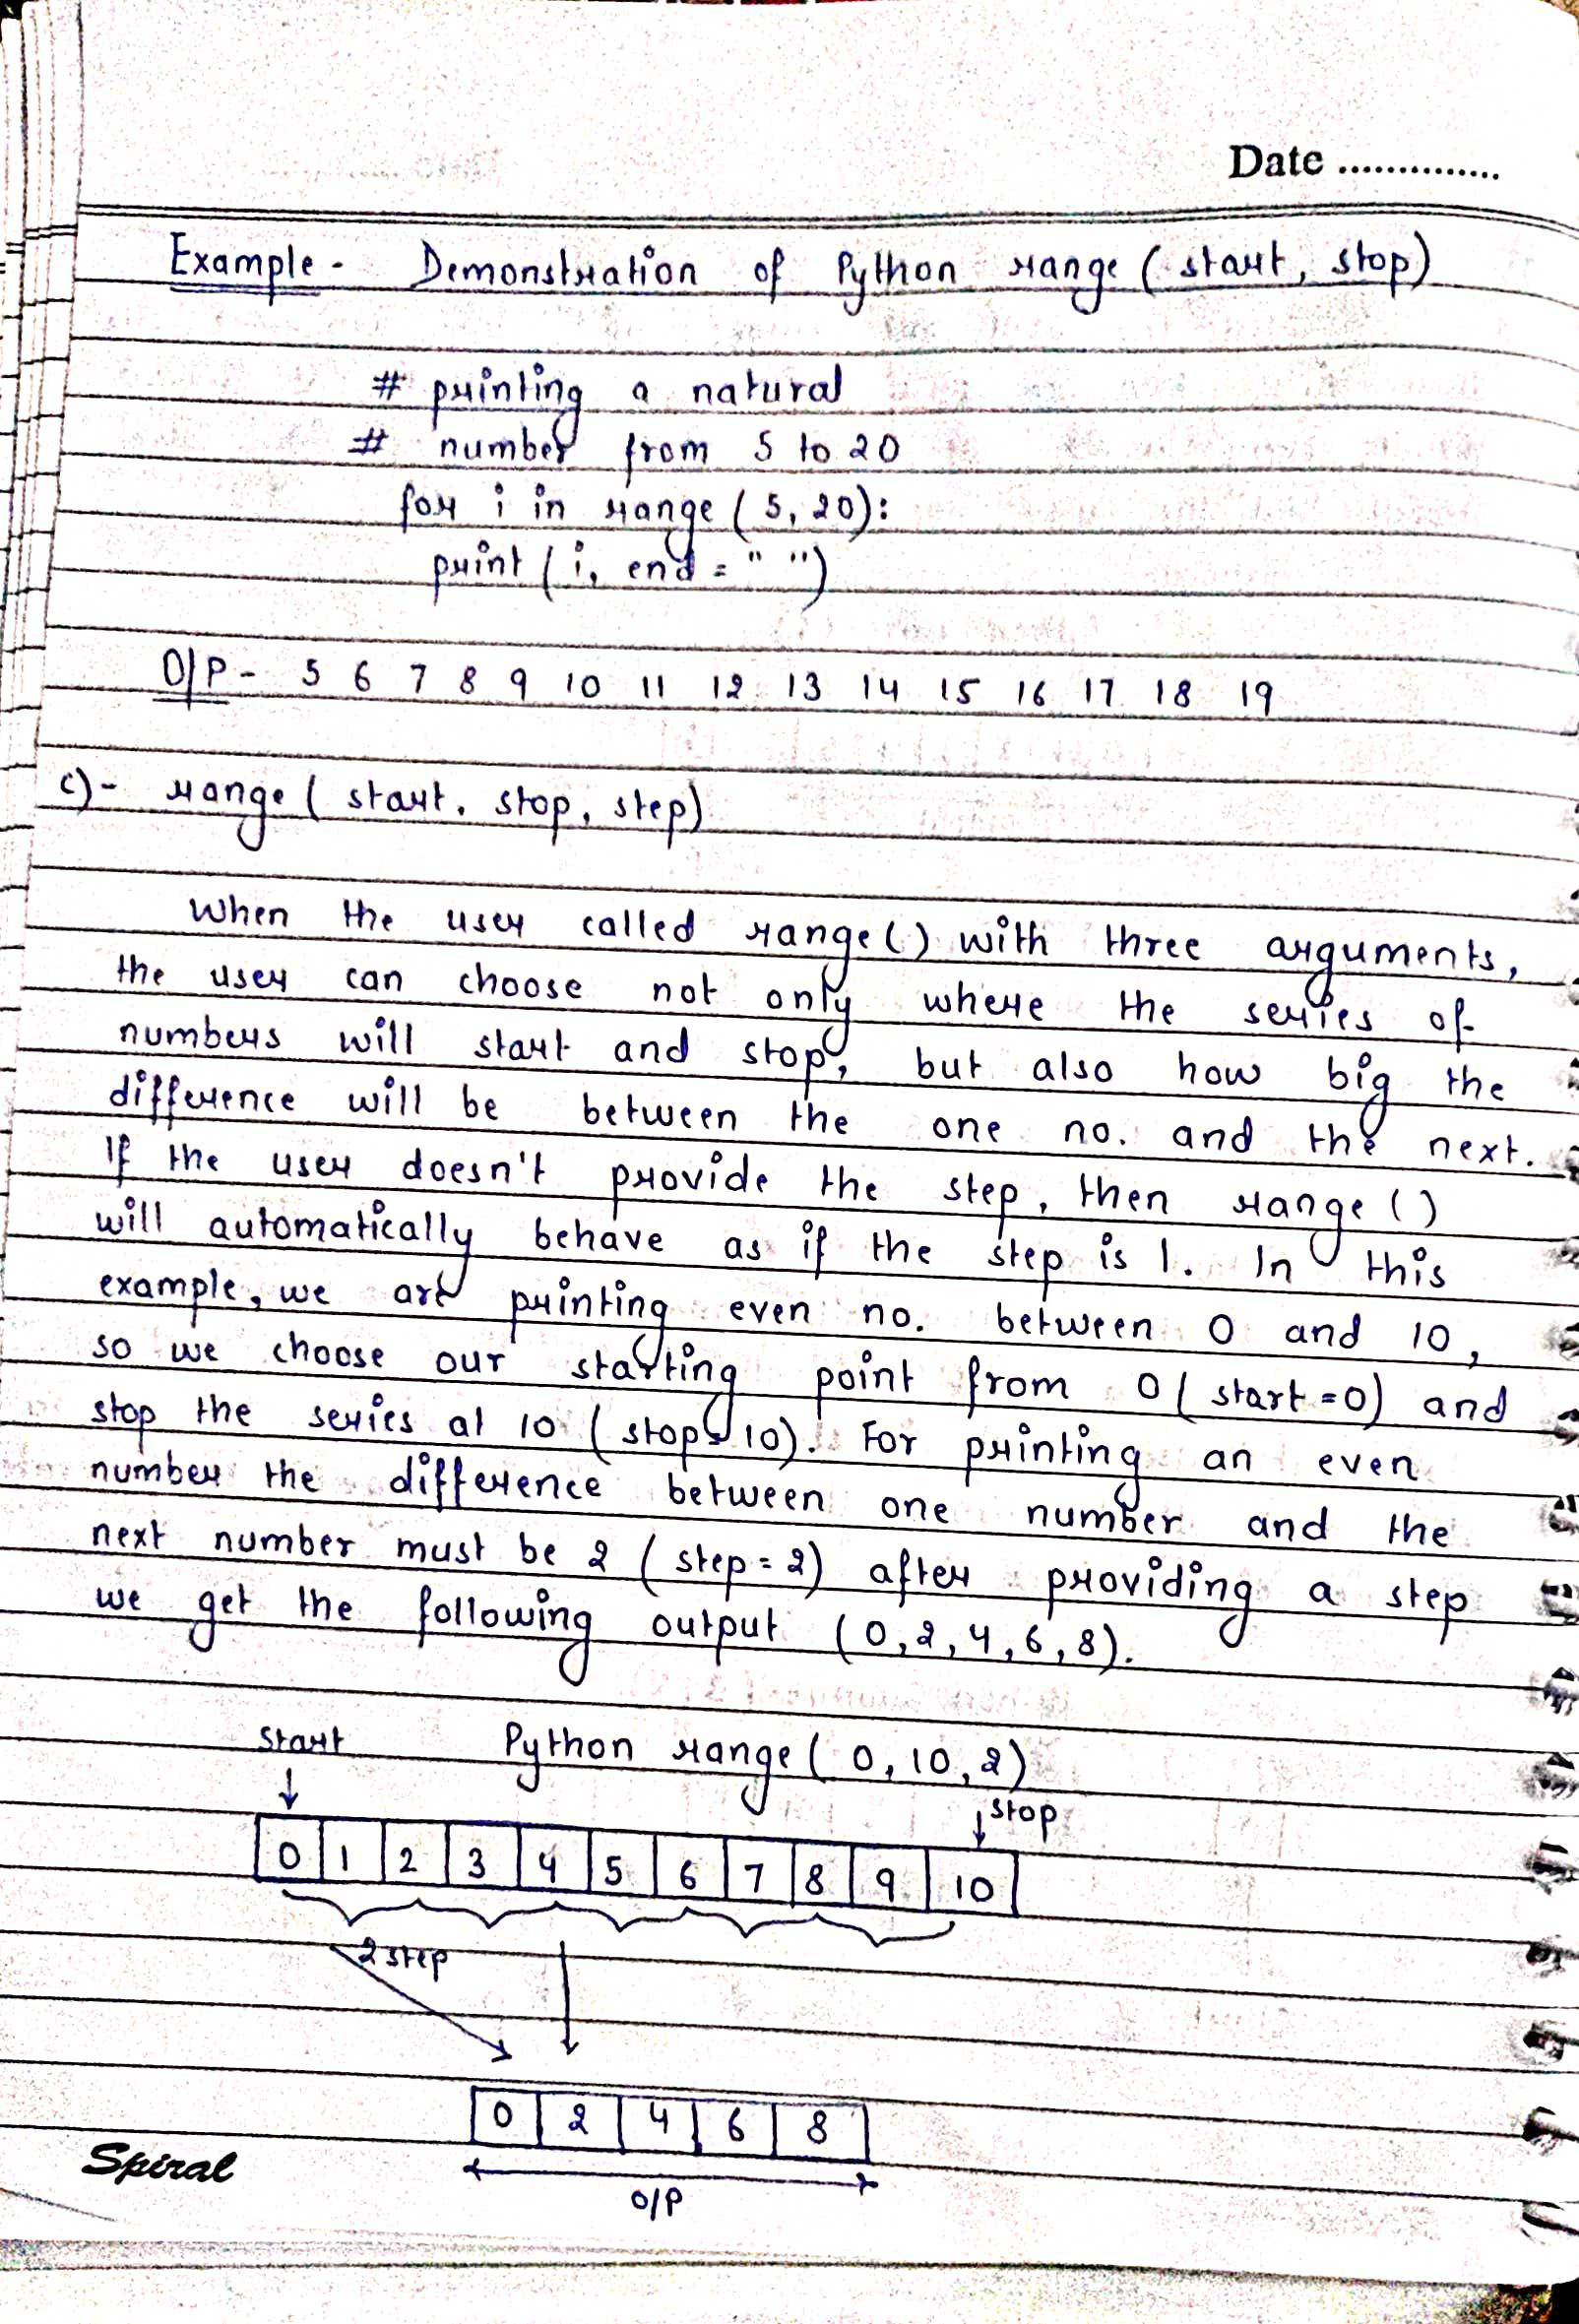 Date ..............
Example - Demonstration of Python range ( start, stop)
# printing a natural
# number from 5 to 20
for i in range ( 5, 20):
print ( i, end = " ")
O/P - 5 6 7 8 9 10 11 12 13 14 15 16 17 18 19
c)- range ( start, stop, step)
When the user called range() with three arguments,
the user can choose not only where the series of
numbers will start and stop, but also how big the
difference will be between the one no. and the next.
If the user doesn't provide the step, then range ()
will automatically behave as if the step is 1. In this
example, we are printing even no. between 0 and 10,
so we choose our starting point from 0 ( start =0) and
stop the series at 10 ( stop = 10). For printing an even
number the difference between one number and the
next number must be 2 ( step = 2) after providing a step
we get the following output (0,2,4,6,8).
Start Python range( 0, 10, 2)
stop
0 1 2 3 4 5 6 7 8 9 10
2 step
0 2 4 6 8
O/P
Spiral